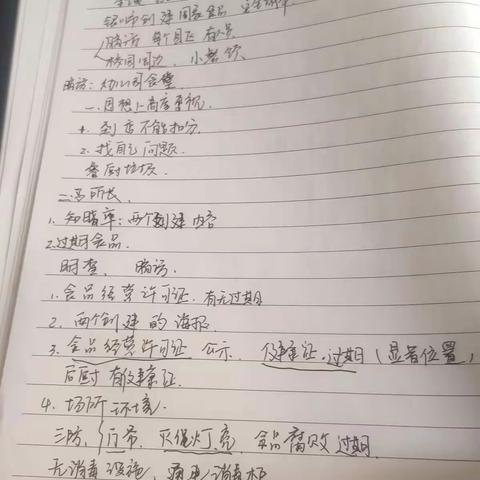 创建国家食品安全城市
暗访 每个月 有
校园周边、小餐饮
暗访：幼儿园食堂
一、思想上高度重视.
到店不能扣分.
2. 找自己问题.
餐厨垃圾.
二、高所长.
1. 知晓率：两个创建内容
2. 过期食品.
明查、暗访.
1. 食品经营许可证. 有无过期
2. 两个创建的海报.
3. 食品经营许可证 公示、健康证 过期（显著位置）
后厨有健康证.
4. 场所环境.
三防、门帘、灭蝇灯亮、食品腐败过期.
无消毒设施、消毒柜